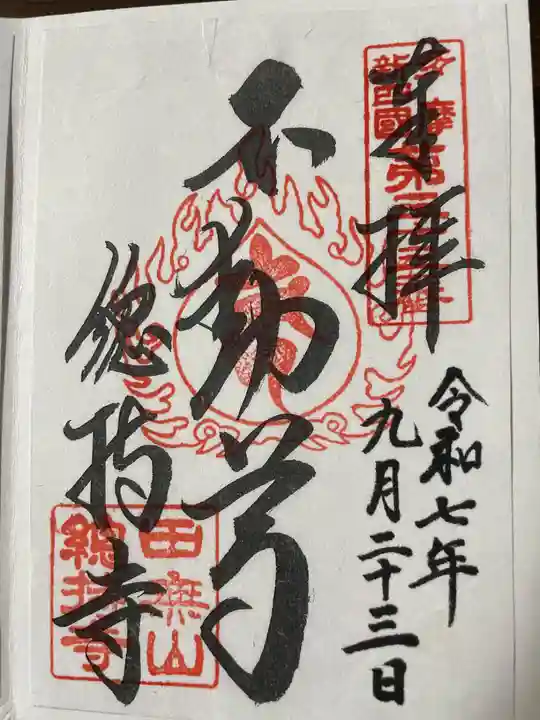 奉拝
令和七年
九月二十三日
不動尊
總持寺
田無山
總持寺